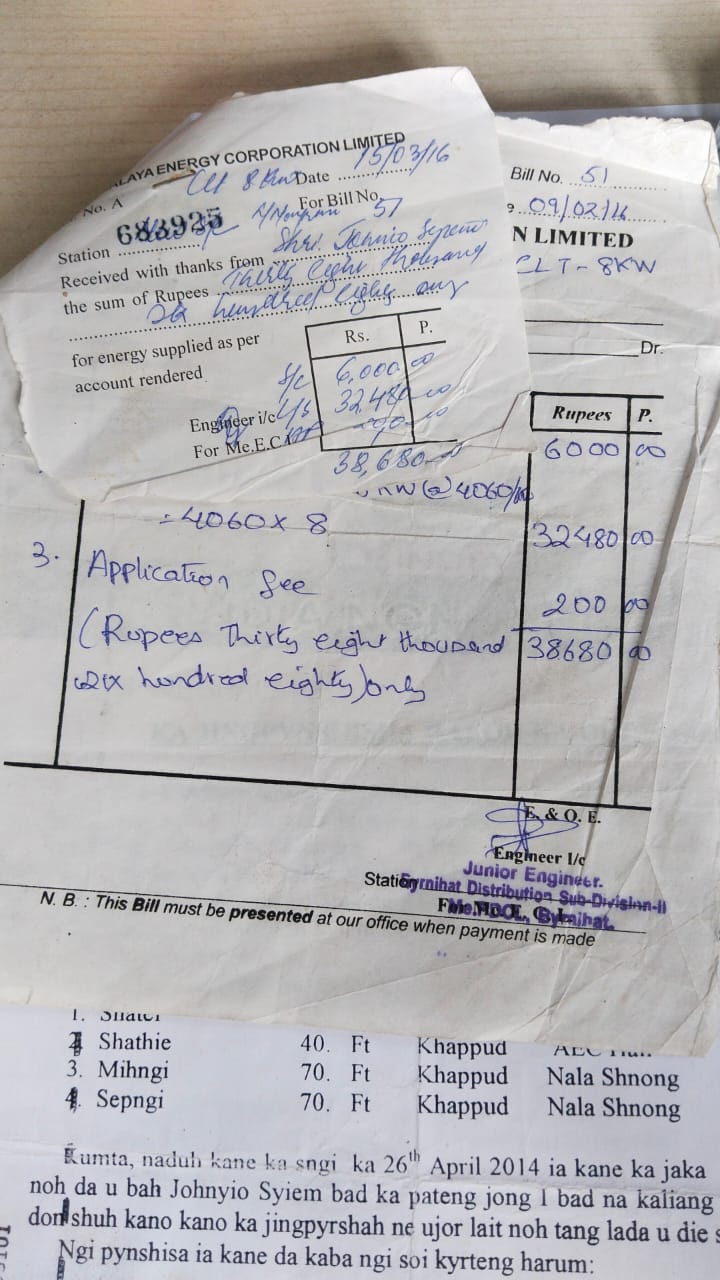 LAYA ENERGY CORPORATION LIMITED
CLT 8 KW
Date 15/03/16
No. A 683925
For Bill No. 51
Station
Received with thanks from Shri.
the sum of Rupees Thirty eight thousand
six hundred eighty only
for energy supplied as per
account rendered
Rs. P.
S/C 6,000 00
32,480 00
Engineer i/c
For Me.E.C
38,680
Bill No. 51
09/02/16
N LIMITED
CLT - 8KW
Dr.
Rupees P.
6000 00
KW @ 4060/
= 4060 x 8
32480 00
3. Application fee
200 00
(Rupees Thirty eight thousand 38680 00
six hundred eighty) only
E. & O. E.
Engineer I/c
Junior Engineer.
Station
Byrnihat Distribution Sub-Division-II
Byrnihat.
N. B. : This Bill must be presented at our office when payment is made
1.
2 Shathie 40. Ft Khappud
3. Mihngi 70. Ft Khappud Nala Shnong
4. Sepngi 70. Ft Khappud Nala Shnong
Kumta, naduh kane ka sngi ka 26th April 2014 ia kane ka jaka
noh da u bah Johnyio Syiem bad ka pateng jong I bad na kaliang
don shuh kano kano ka jingpyrshah ne ujor lait noh tang lada u die
Ngi pynshisa ia kane da kaba ngi soi kyrteng harum: